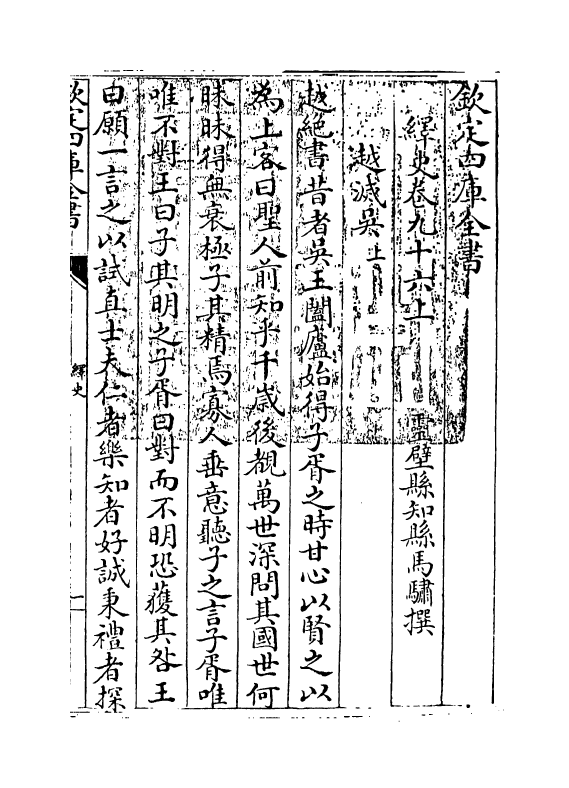 欽定四庫全書
繹史卷九十六上
靈壁縣知縣馬驌撰
越滅吳上
越絶書昔者吳王闔廬始得子胥之時甘心以賢之以
為上客曰聖人前知乎千歲後覩萬世深問其國世何
昧昧得無衰極子其精焉寡人垂意聽子之言子胥唯
唯不對王曰子其明之子胥曰對而不明恐獲其咎王
曰願一言之以試直士夫仁者樂知者好誠秉禮者探
欽定四庫全書
繹史
一